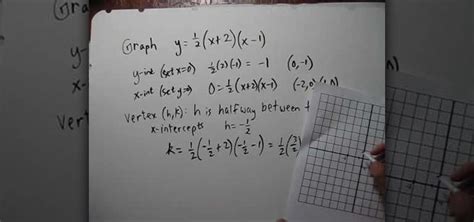 ① Graph y = ½(x+2)(x-1)
y-int (set x=0) ½(2)(-1) = -1 (0,-1)
x-int (set y=0) 0 = ½(x+2)(x-1) (-2,0)
Vertex (h,k): h is halfway between
x-intercepts h = -½
k = ½(-½+2)(-½-1) = ½(3/2)